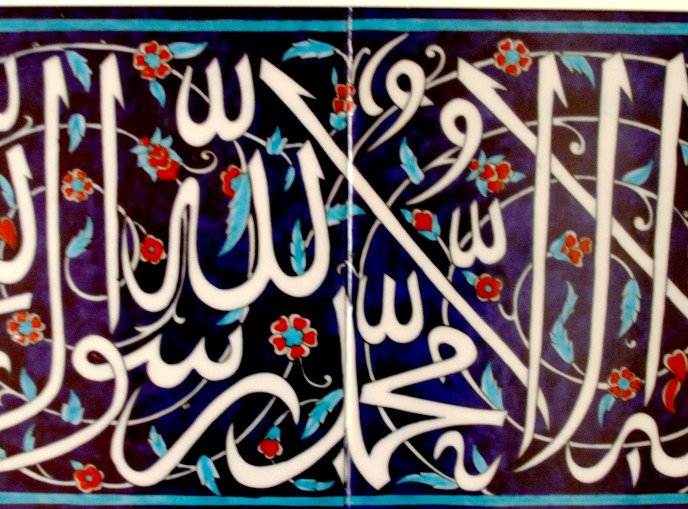 اله الا الله محمد رسول الله